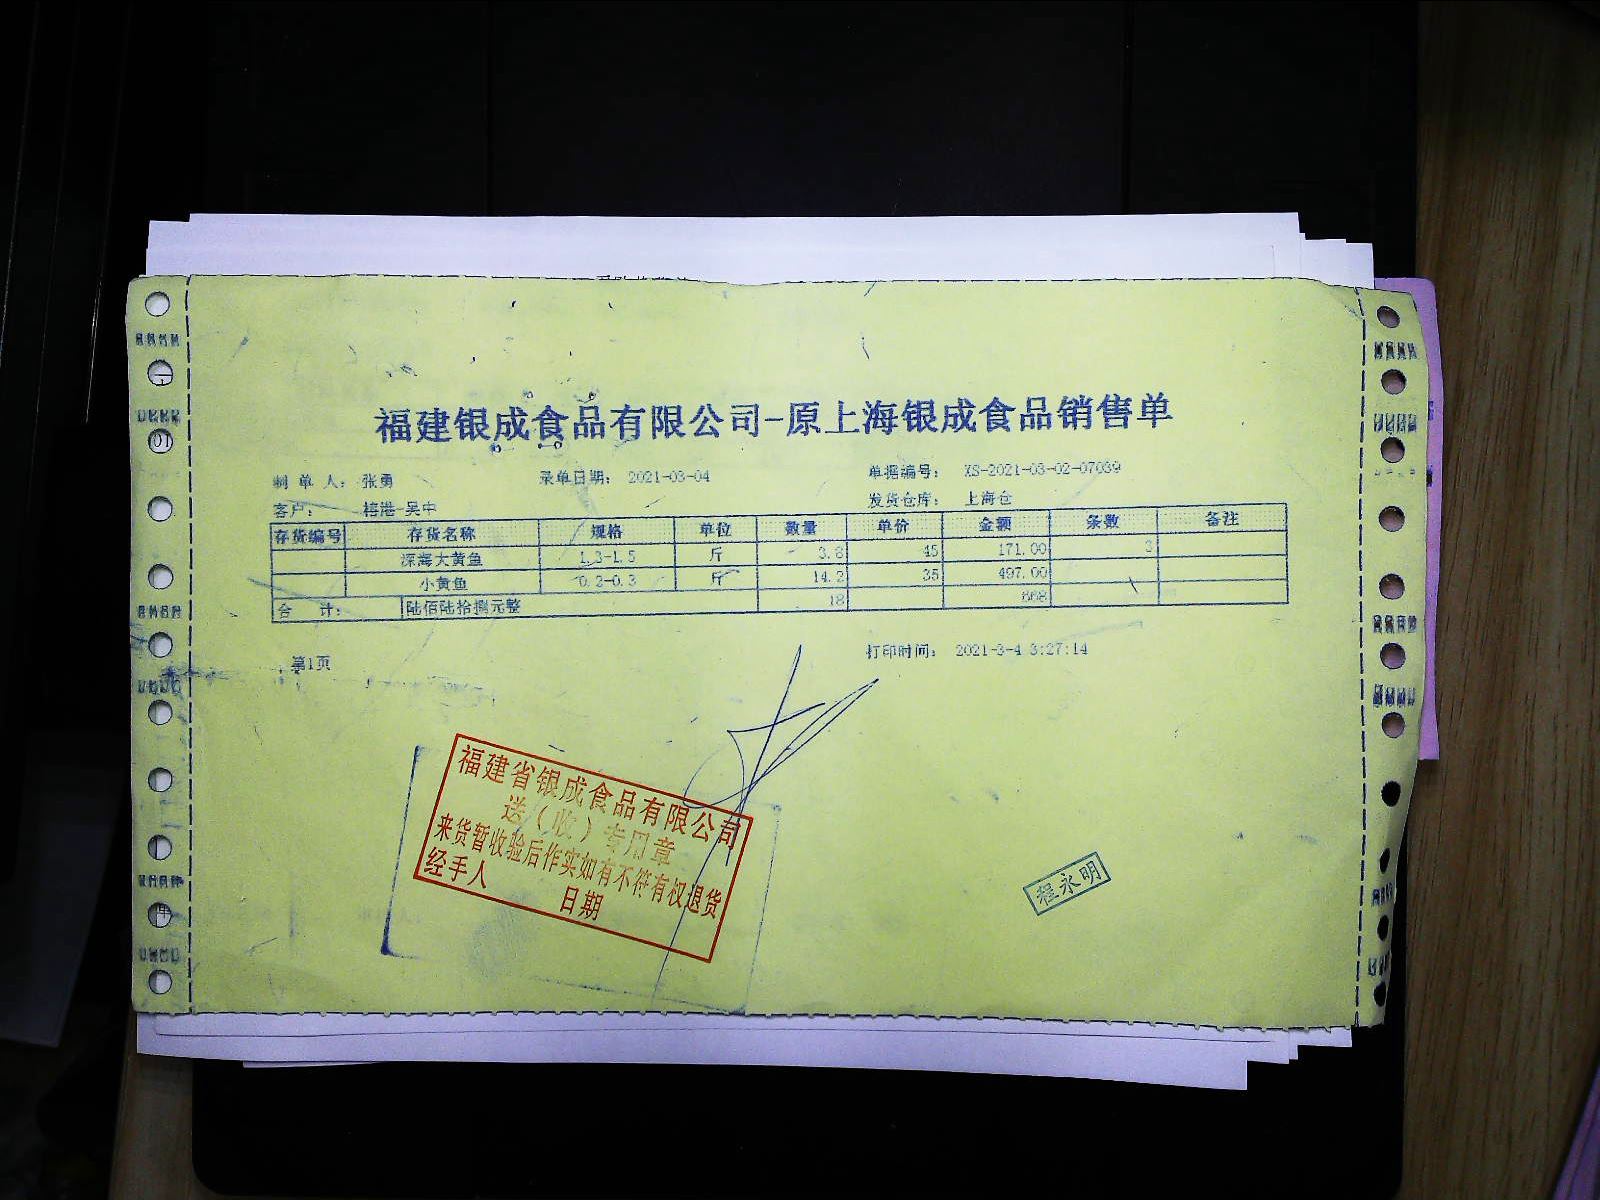 福建银成食品有限公司-原上海银成食品销售单
制单人： 张勇 录单日期： 2021-03-04 单据编号： XS-2021-03-02-07039
客户： 榕港-吴中 发货仓库： 上海仓
存货编号 存货名称 规格 单位 数量 单价 金额 条数 备注
深海大黄鱼 1.3-1.5 斤 3.8 45 171.00 3
小黄鱼 0.2-0.3 斤 14.2 35 497.00
合 计： 陆佰陆拾捌元整 18 668
第1页 打印时间： 2021-3-4 3:27:14
福建省银成食品有限公司
送（收）专用章
来货暂收验后作实如有不符有权退货
经手人 日期
程永明